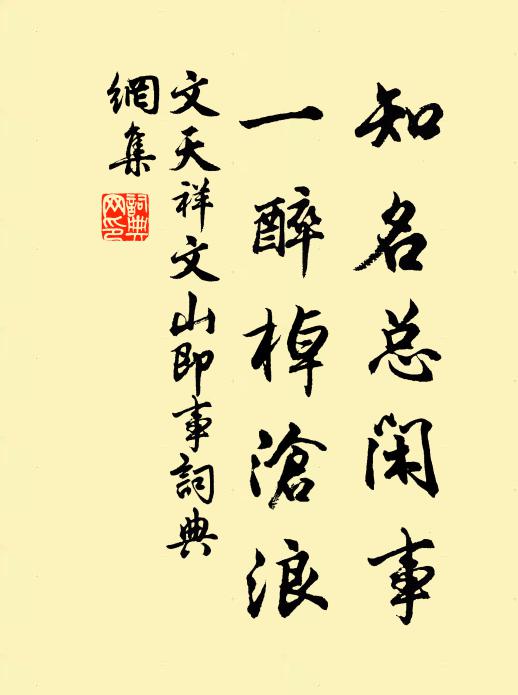 知名总闲事
一醉棹滄浪
文天祥文山即事詞典
網集
詞典网印